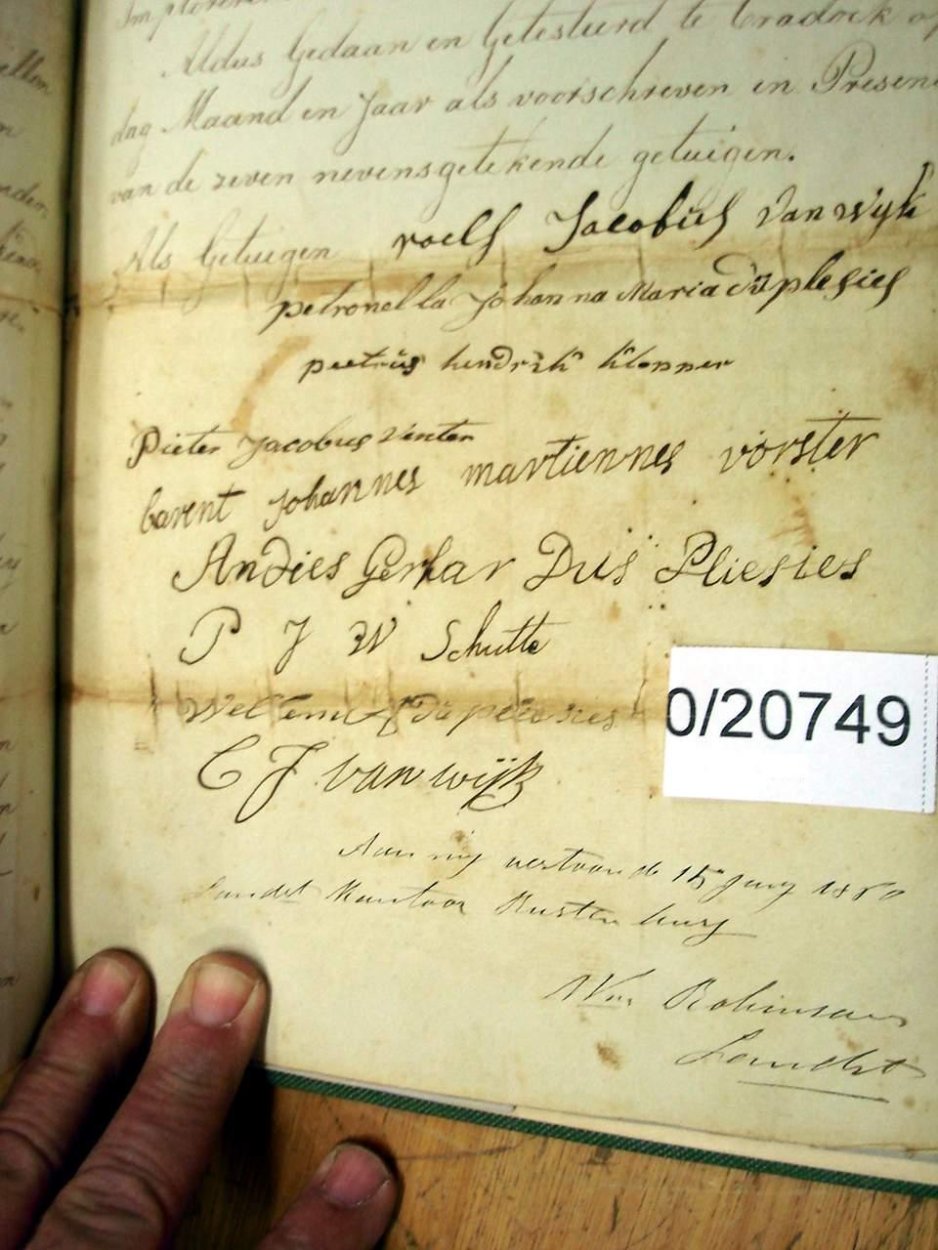 Aldus Gedaan en Getesteerd te Cradock op
dag Maand en Jaar als voorschreven in Presen
van de zeven nevensgetekende getuigen.
Als Getuigen roelf Jacobus van wyk
petronella Johanna Maria düplesies
peetrüs hendrik klopper
Pieter Jacobus Venter
barent Johannes martiennes vorster
Andies Gerhar Düs Pliesies
P J W Schutte
0/20749
C J van wÿk
Aan mij vertoond 15 Juny
Landdt Kantoor Rustenburg
Wm Robinson
Landdst